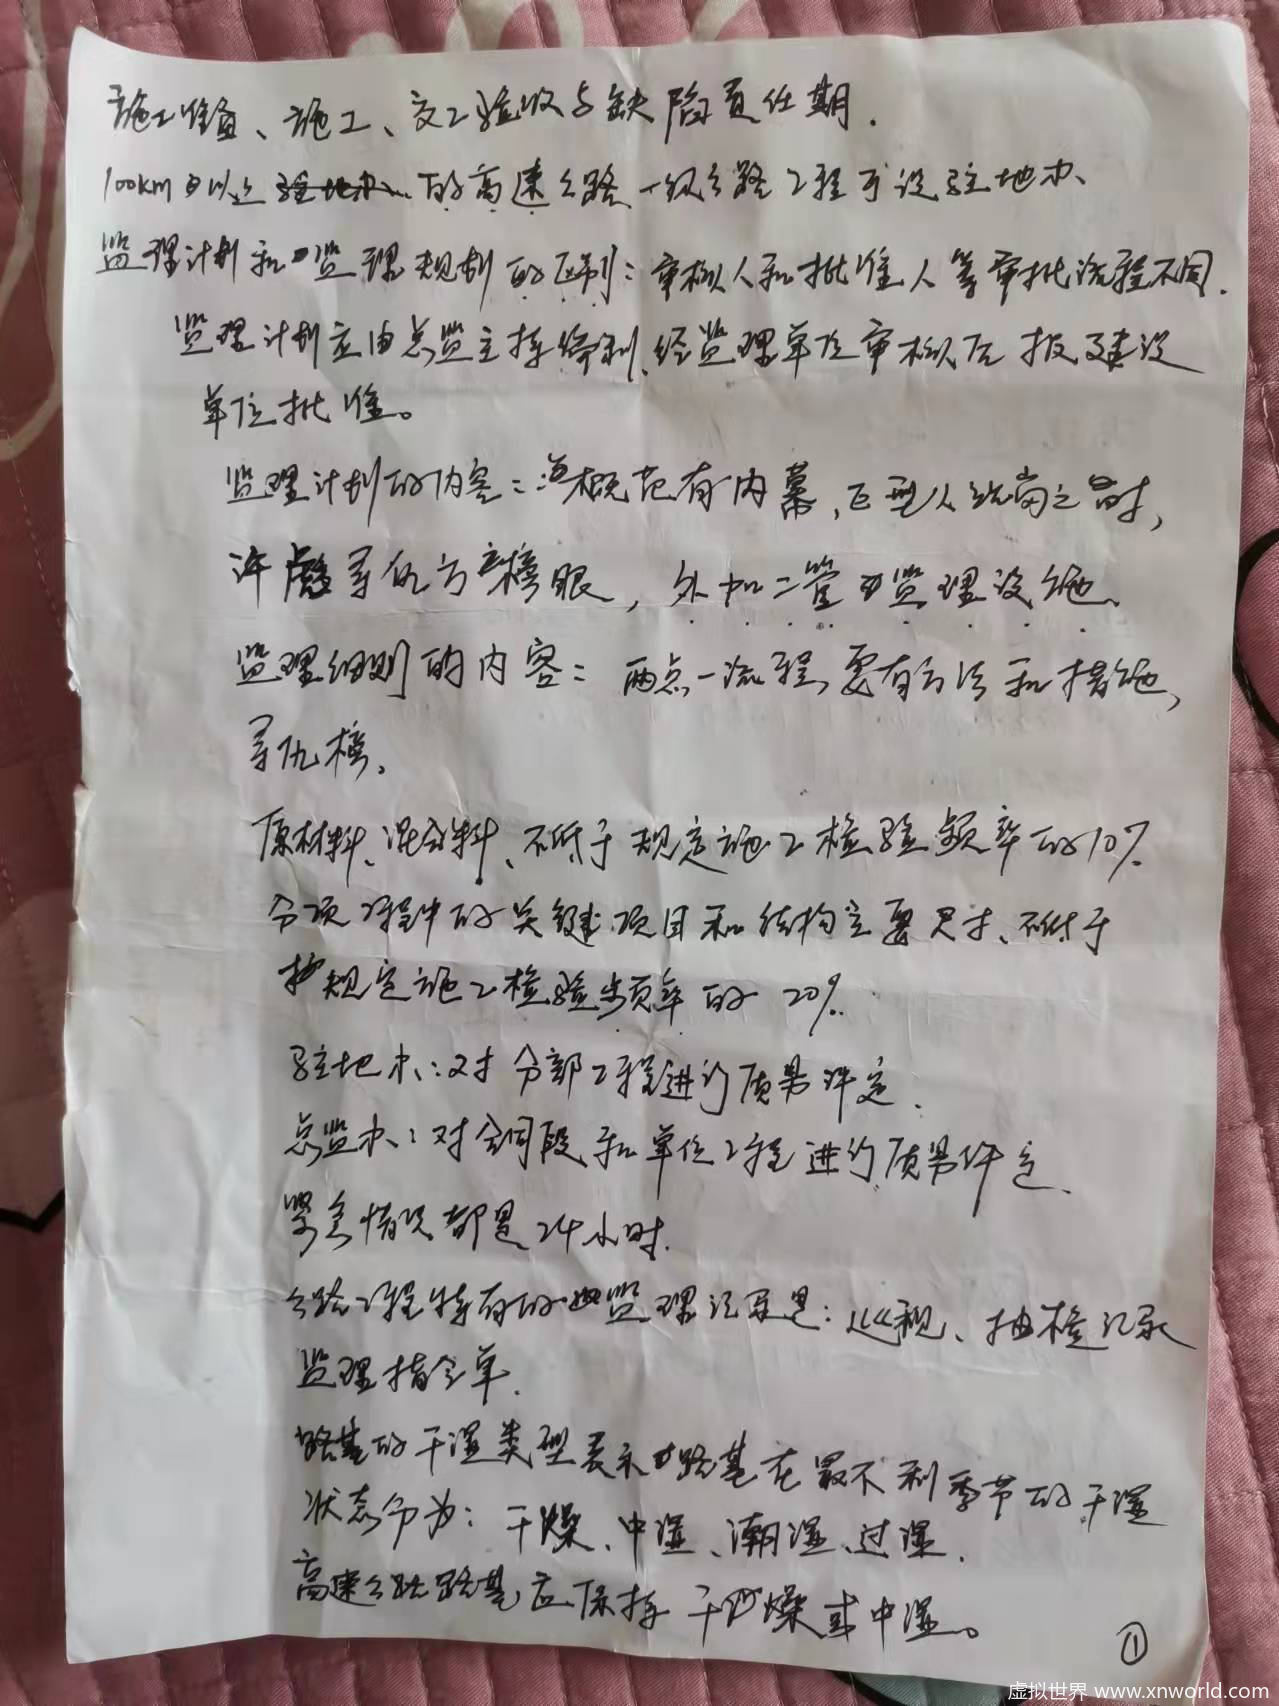 施工准备、施工、交工验收与缺陷责任期.
100km以上的高速公路、一级公路工程可设驻地办、
监理计划和监理规划的区别：审核人和批准人等审批流程不同.
监理计划应由总监主持编制、经监理单位审核后报建设
单位批准。
监理计划的内容：概范有内幕,巨型人统岗之时,
许寻仇方案榜眼,外加二管监理设施、
监理细则的内容：两点一流程,要有方法和措施,
寻仇榜、
原材料、混合料、不低于规定施工检验频率的10%.
分项工程中的关键项目和结构主要尺寸、不低于
规定施工检验频率的20%.
驻地办：对分部工程进行质量评定.
总监办：对合同段和单位工程进行质量评定.
紧急情况都是24小时.
公路工程特有的监理记录是：巡视、抽检记录
监理指令单.
路基的干湿类型表示路基在最不利季节的干湿
状态分为：干燥、中湿、潮湿、过湿.
高速公路路基应保持干燥或中湿。
①
虚拟世界 www.xnworld.com